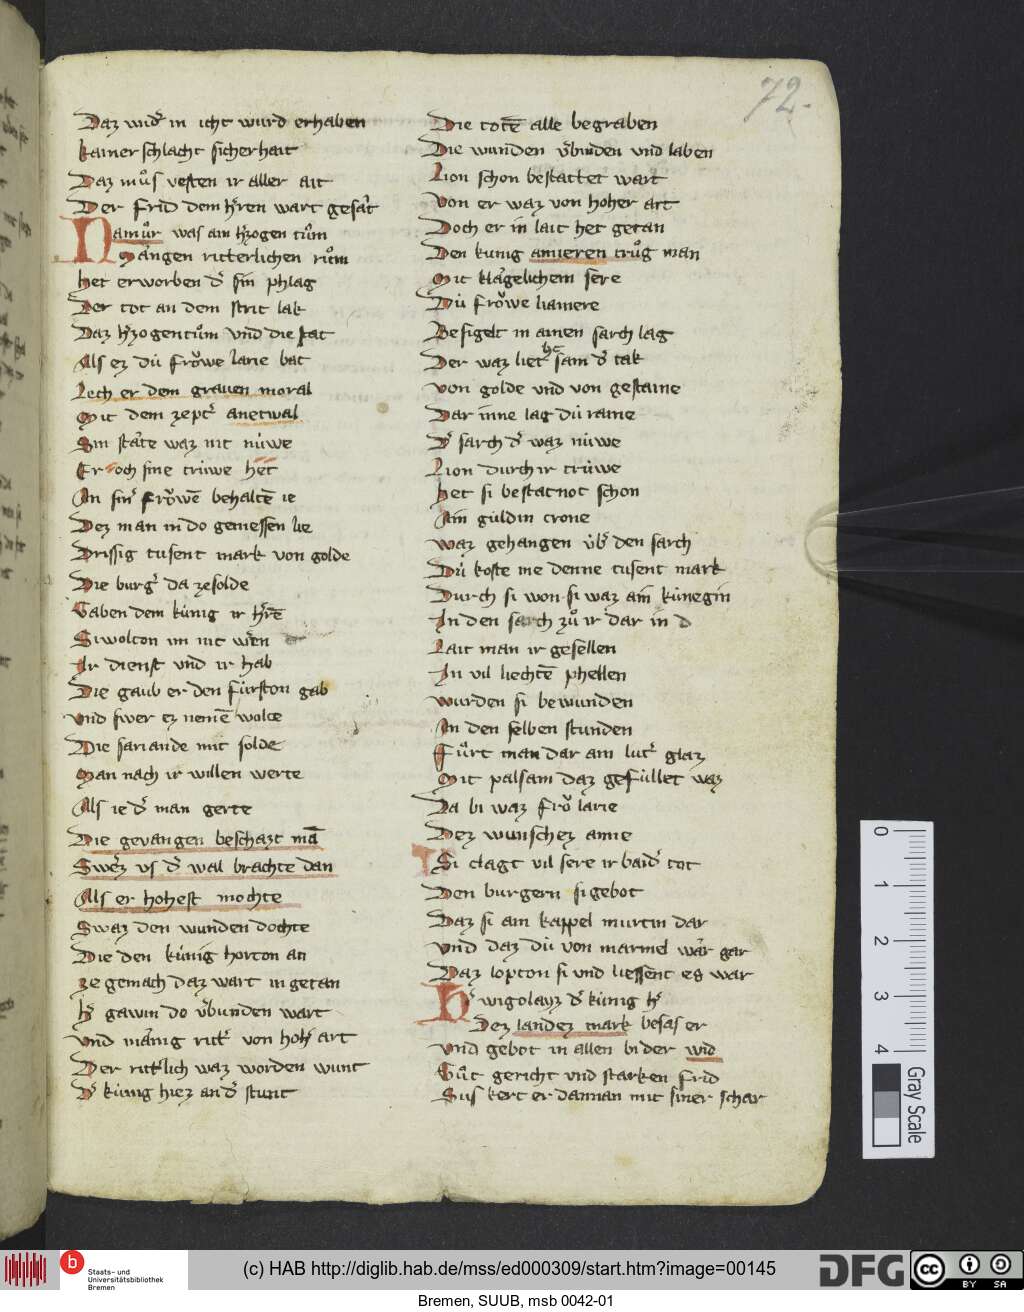 72.
Daz wid᷑ in icht wurd erhaben
kainer schlacht sicherhait
Daz můs vesten ir aller ait
Der frid dem h᷑ren wart gesat
Namůr was ain h᷑zogen tům
Mangen ritterlichen rům
het erworben d᷑ sin phlag
Der tot an dem strit lak
Daz h᷑zogentům vnd die stat
Als ez dü frowe larie bat
Lech er dem grauen moral
Mit dem zept᷑ anetwal
Sin state waz nit nüwe
Er och sine trüwe het
An sin᷑ frowē behaltē ie
Dez man in do geniessen lie
Drissig tusent mark von golde
Die burg᷑ da ze solde
Gaben dem künig ir h᷑rē
Si wolton im nit w᷑en
Ir dienst vnd ir hab
Die gaub er den fürston gab
vnd swer ez nemē wolte
Die sariande mit solde
Man nach ir willen werte
Als ie d᷑ man gerte
Die gevangen beschazt mā
Swez vf d᷑ wal brachte dan
Als er hohest mochte
Swaz den wunden dochte
Die den künig horton an
ze gemach daz wart in getan
h᷑ gawin do v᷑bunden wart
vnd manig ritt᷑ von hoh᷑ art
Der ritt᷑lich waz worden wunt
D᷑ künig hiez an d᷑ stunt
Die totē alle begraben
Die wunden v᷑binden vnd laben
Lion schon bestattet wart
von er waz von hoher art
Doch er in lait het getan
Den kunig amieren trůg man
Mit klagelichem sere
Dü frowe liamere
Besigelt in ainen sarch lag
Der waz lieht sam d᷑ tak
von golde vnd von gestaine
Dar inne lag dü raine
D᷑ sarch d᷑ waz nüwe
Lion durch ir trüwe
het si bestatnot schon
Ain guldin crone
waz gehangen üb᷑ den sarch
Dü koste me denne tusent mark
Durch si won si waz ain künegin
In den sarch zů ir dar in
Lait man ir gesellen
In vil liechtē phellen
wurden si bewunden
An den selben stunden
Fůrt man dar ain lut᷑ glaz
Mit palsam daz gefüllet waz
Da bi waz frow larie
Dez wunschez amie
Si clagt vil sere ir baid᷑ tot
Den burgern si gebot
Daz si ain kappel murtin dar
vnd daz dü von marmel war gar
Daz lopton si vnd liessent es war
H᷑ wigolayz d᷑ künig h᷑
Dez landez mark besas er
vnd gebot in allen bi der wid
Gůt gericht vnd starken frid
Sus kert er dannan mit siner schar
0
1
2
3
4
Gray Scale
b
Staats- und
Universitätsbibliothek
Bremen
(c) HAB http://diglib.hab.de/mss/ed000309/start.htm?image=00145
DFG
cc
BY SA
Bremen, SUUB, msb 0042-01